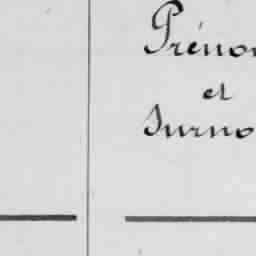 Prénom
et
Surno